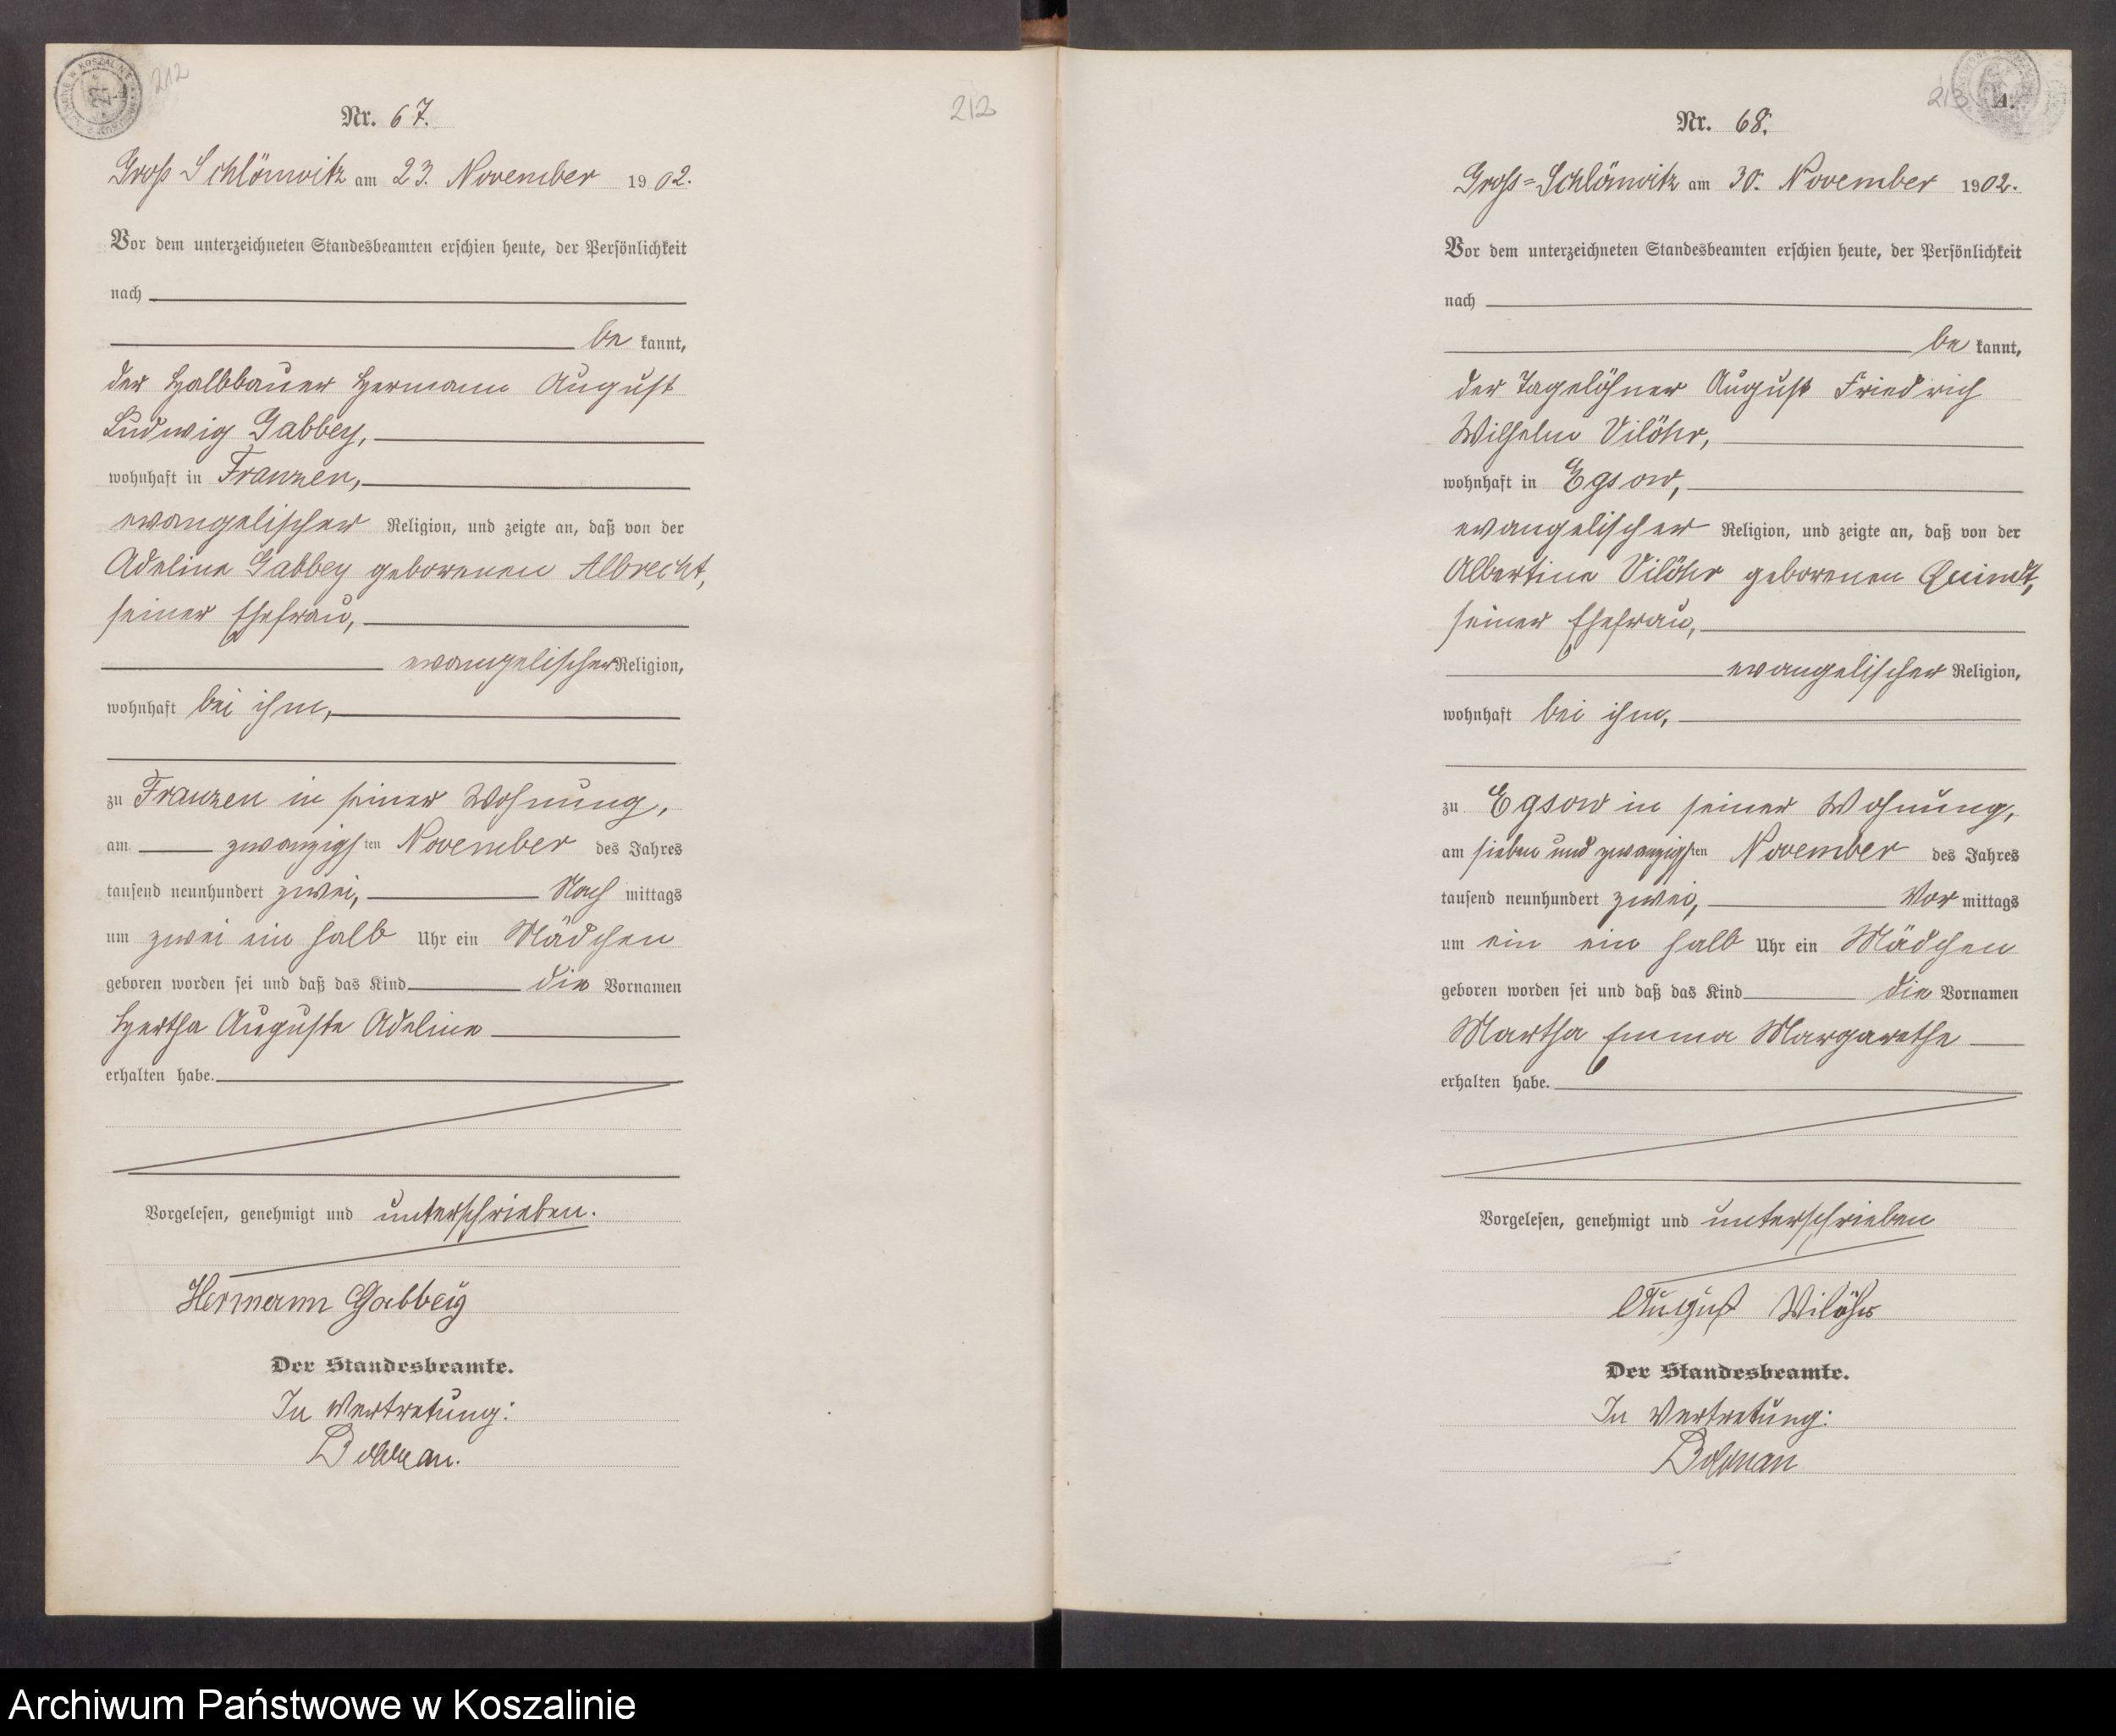 212
Nr. 67.
Groß Schlönwitz am 23. November 1902.
Vor dem unterzeichneten Standesbeamten erschien heute, der Persönlichkeit
nach
be kannt,
der Halbbauer Hermann August
Ludwig Gabbey,
wohnhaft in Franzen,
evangelischer Religion, und zeigte an, daß von der
Adeline Gabbey geborenen Albrecht,
seiner Ehefrau,
evangelischer Religion,
wohnhaft bei ihm,
zu Franzen in seiner Wohnung,
am zwanzigsten November des Jahres
tausend neunhundert zwei, Nach mittags
um zwei ein halb Uhr ein Mädchen
geboren worden sei und daß das Kind die Vornamen
Hertha Auguste Adeline
erhalten habe.
Vorgelesen, genehmigt und unterschrieben.
Hermann Gabbey
Der Standesbeamte.
In Vertretung:
212
213
A.
Nr. 68.
Gross=Schlönwitz am 30. November 1902.
Vor dem unterzeichneten Standesbeamten erschien heute, der Persönlichkeit
nach
be kannt,
der Tagelöhner August Friedrich
Wilhelm Vilöhr,
wohnhaft in Egsow,
evangelischer Religion, und zeigte an, daß von der
Albertine Vilöhr geborenen Quindt,
seiner Ehefrau,
evangelischer Religion,
wohnhaft bei ihm,
zu Egsow in seiner Wohnung,
am sieben und zwanzigsten November des Jahres
tausend neunhundert zwei, Vor mittags
um ein ein halb Uhr ein Mädchen
geboren worden sei und daß das Kind die Vornamen
Martha Emma Margarethe
erhalten habe.
Vorgelesen, genehmigt und unterschrieben
August Vilöhr
Der Standesbeamte.
In Vertretung:
Archiwum Państwowe w Koszalinie